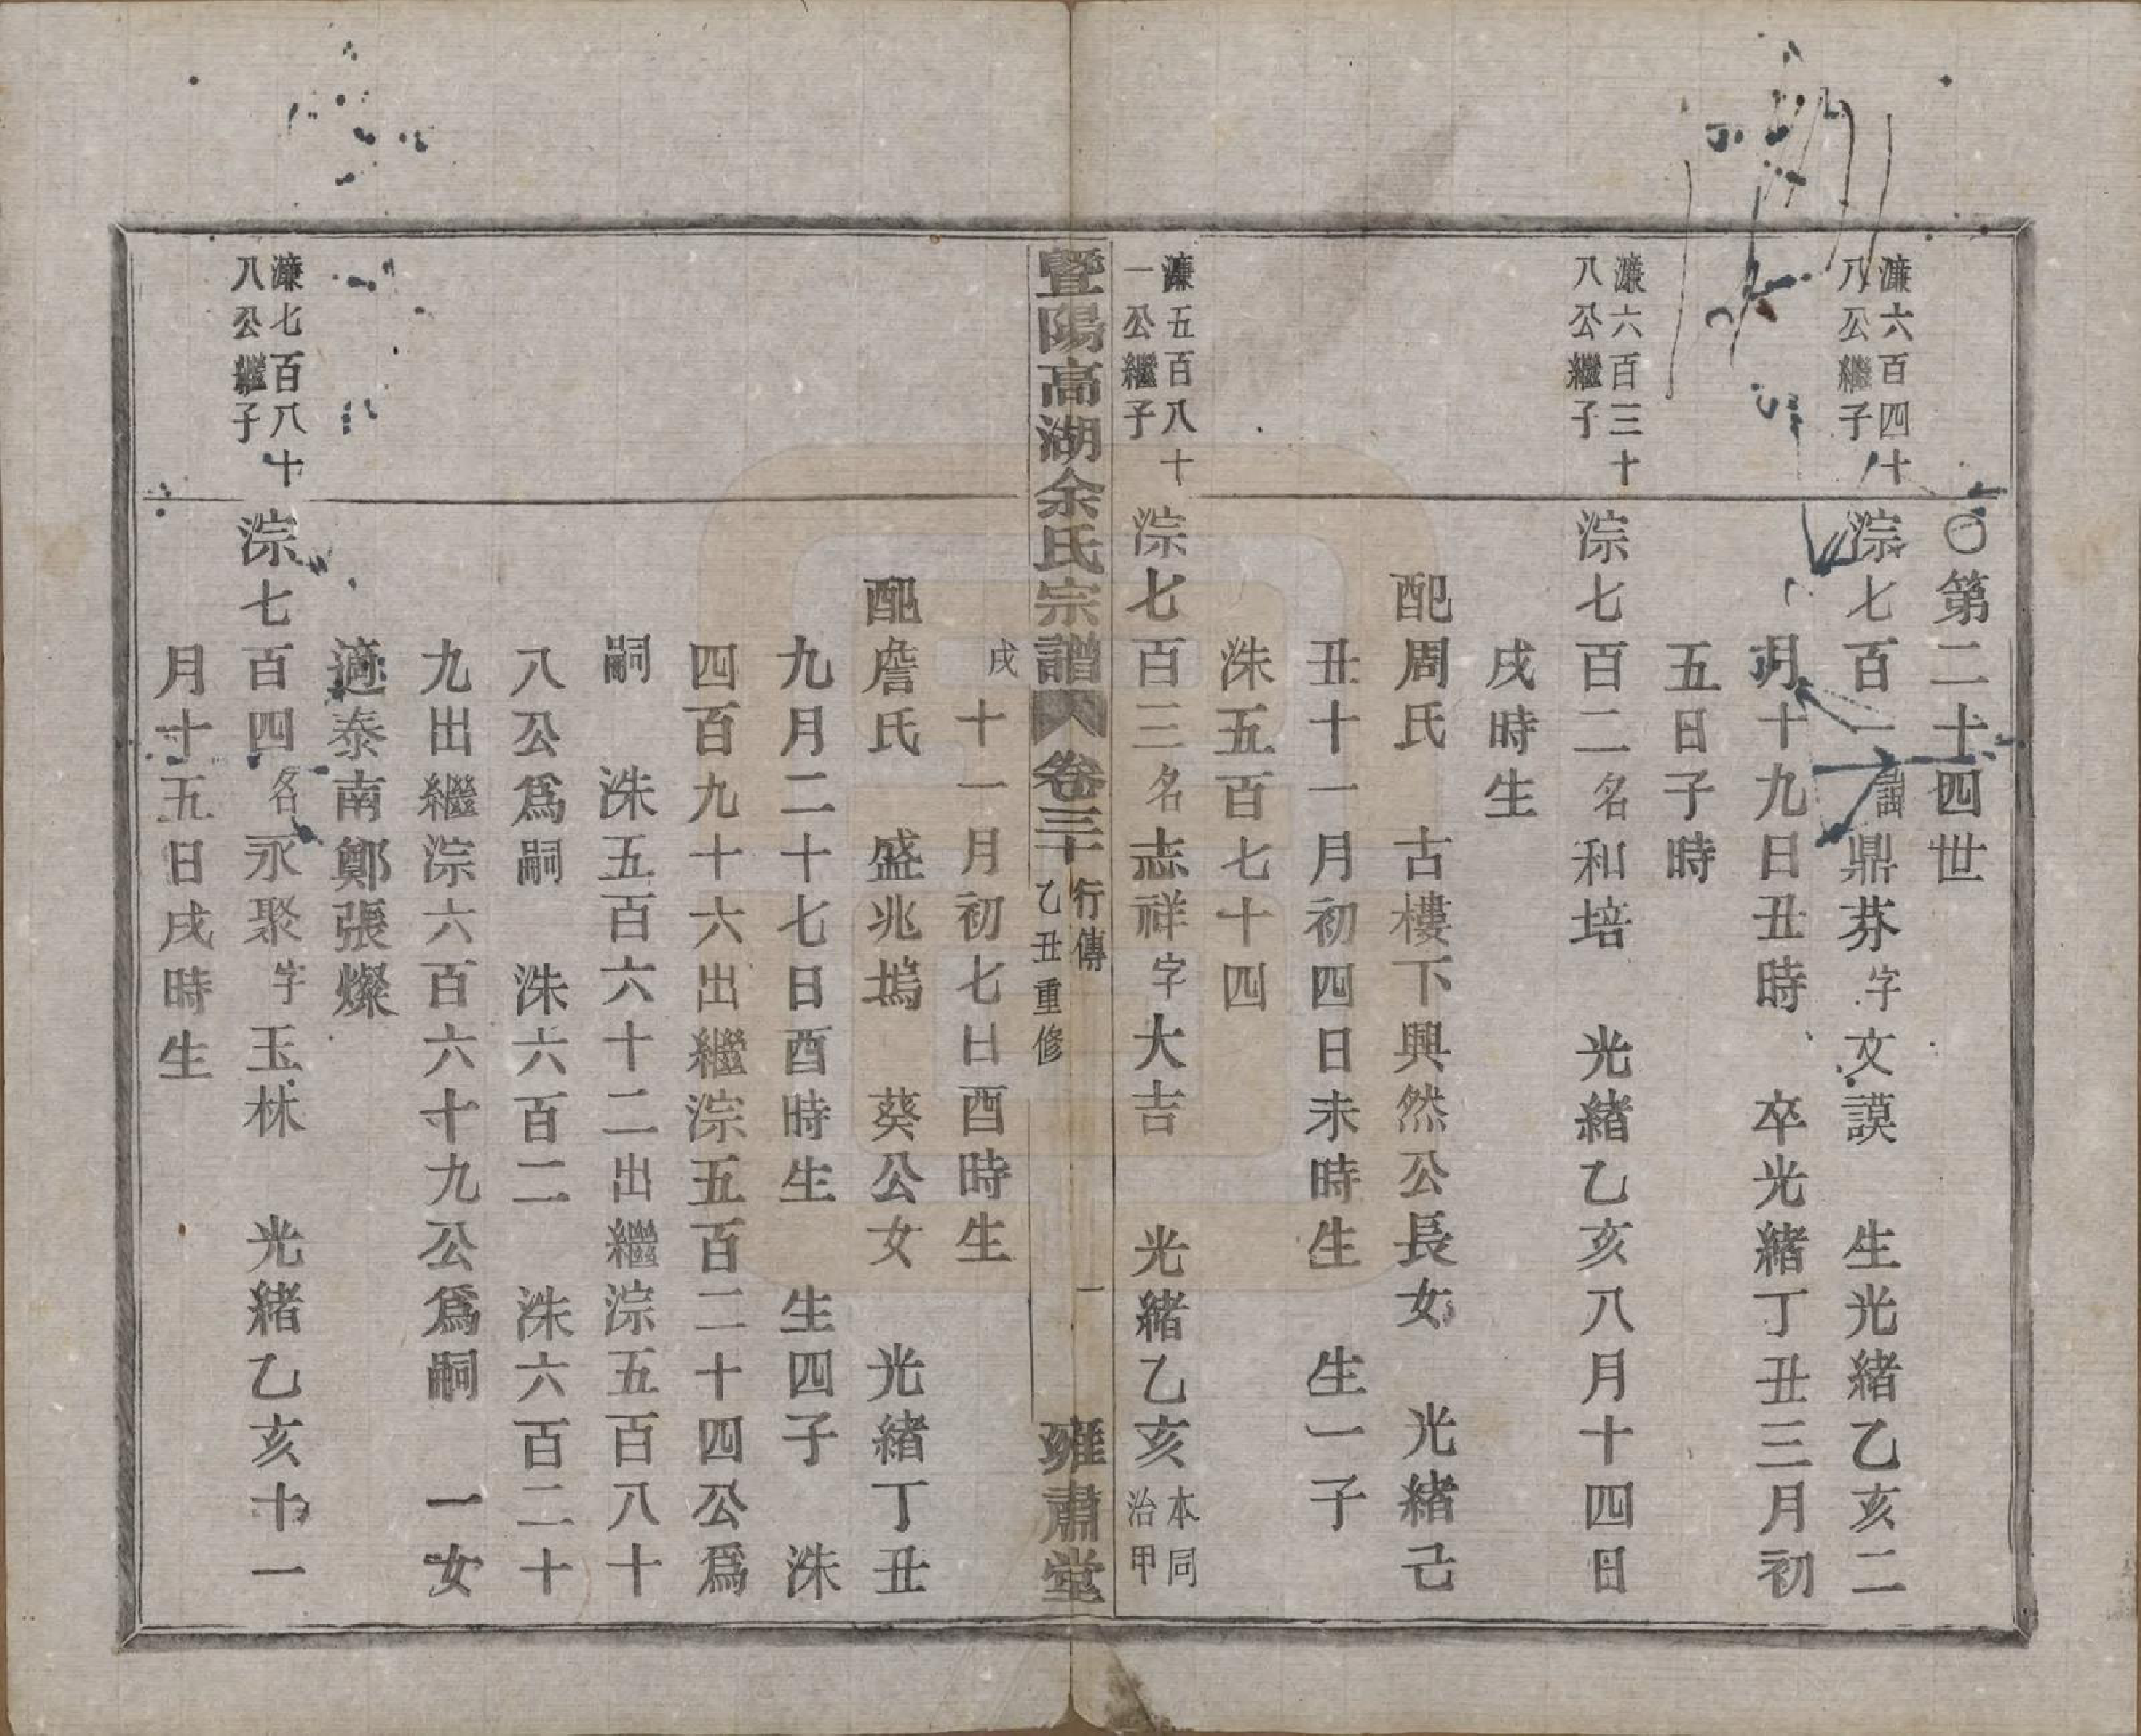 〇第二十四世
濂六百四十
八公繼子
淙七百一諱鼎芬字文謨　生光緒乙亥二
月十九日丑時　卒光緒丁丑三月初
五日子時
濂六百三十
八公繼子
淙七百二名和培　光緒乙亥八月十四日
戌時生
配周氏　古樓下興然公長女　光緒己
丑十一月初四日未時生　生一子
洙五百七十四
濂五百八十
一公繼子
淙七百三名志祥字大吉　光緒乙亥本同
治甲
暨陽高湖余氏宗譜　卷三十　行傳
乙丑重修　一　雍肅堂
戌十一月初七日酉時生
配詹氏　盛兆塢　葵公女　光緒丁丑
九月二十七日酉時生　生四子　洙
四百九十六出繼淙五百二十四公爲
嗣　洙五百六十二出繼淙五百八十
八公爲嗣　洙六百二　洙六百二十
九出繼淙六百六十九公爲嗣　一女
適泰南鄭張燦
濂七百八十
八公繼子
淙七百四名永聚字玉林　光緒乙亥十一
月十五日戌時生